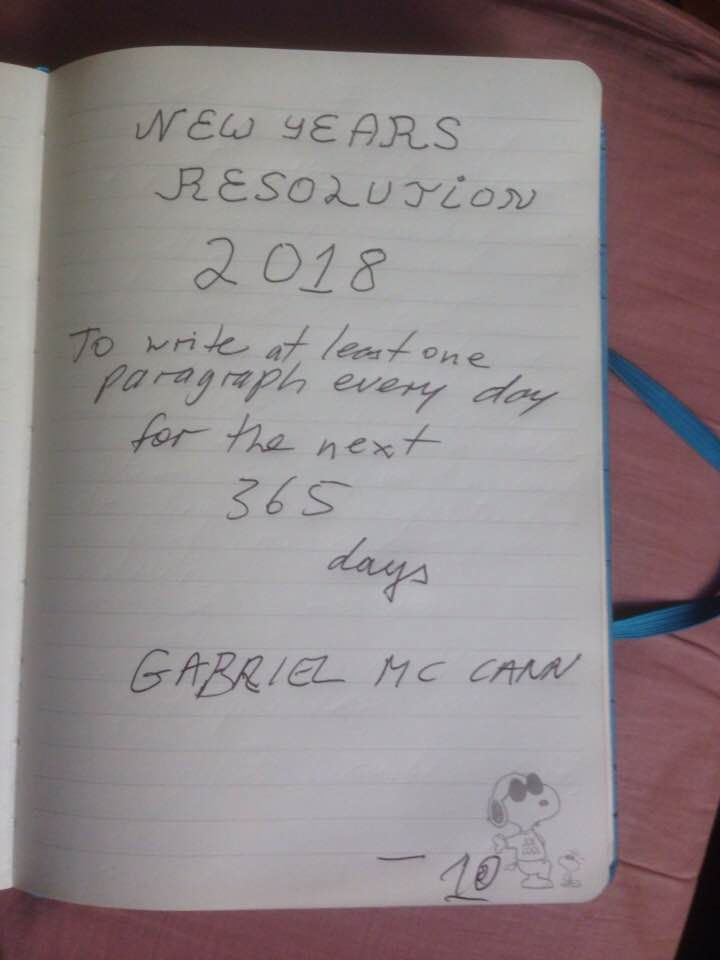 NEW YEARS
RESOLUTION
2018
To write at least one
paragraph every day
for the next
365
days
GABRIEL MC CANN